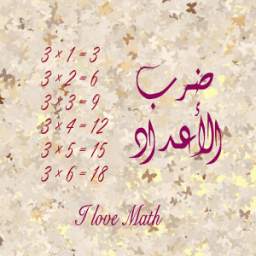 3 × 1 = 3
3 × 2 = 6
3 × 3 = 9
3 × 4 = 12
3 × 5 = 15
3 × 6 = 18
ضرب
الأعداد
I love Math